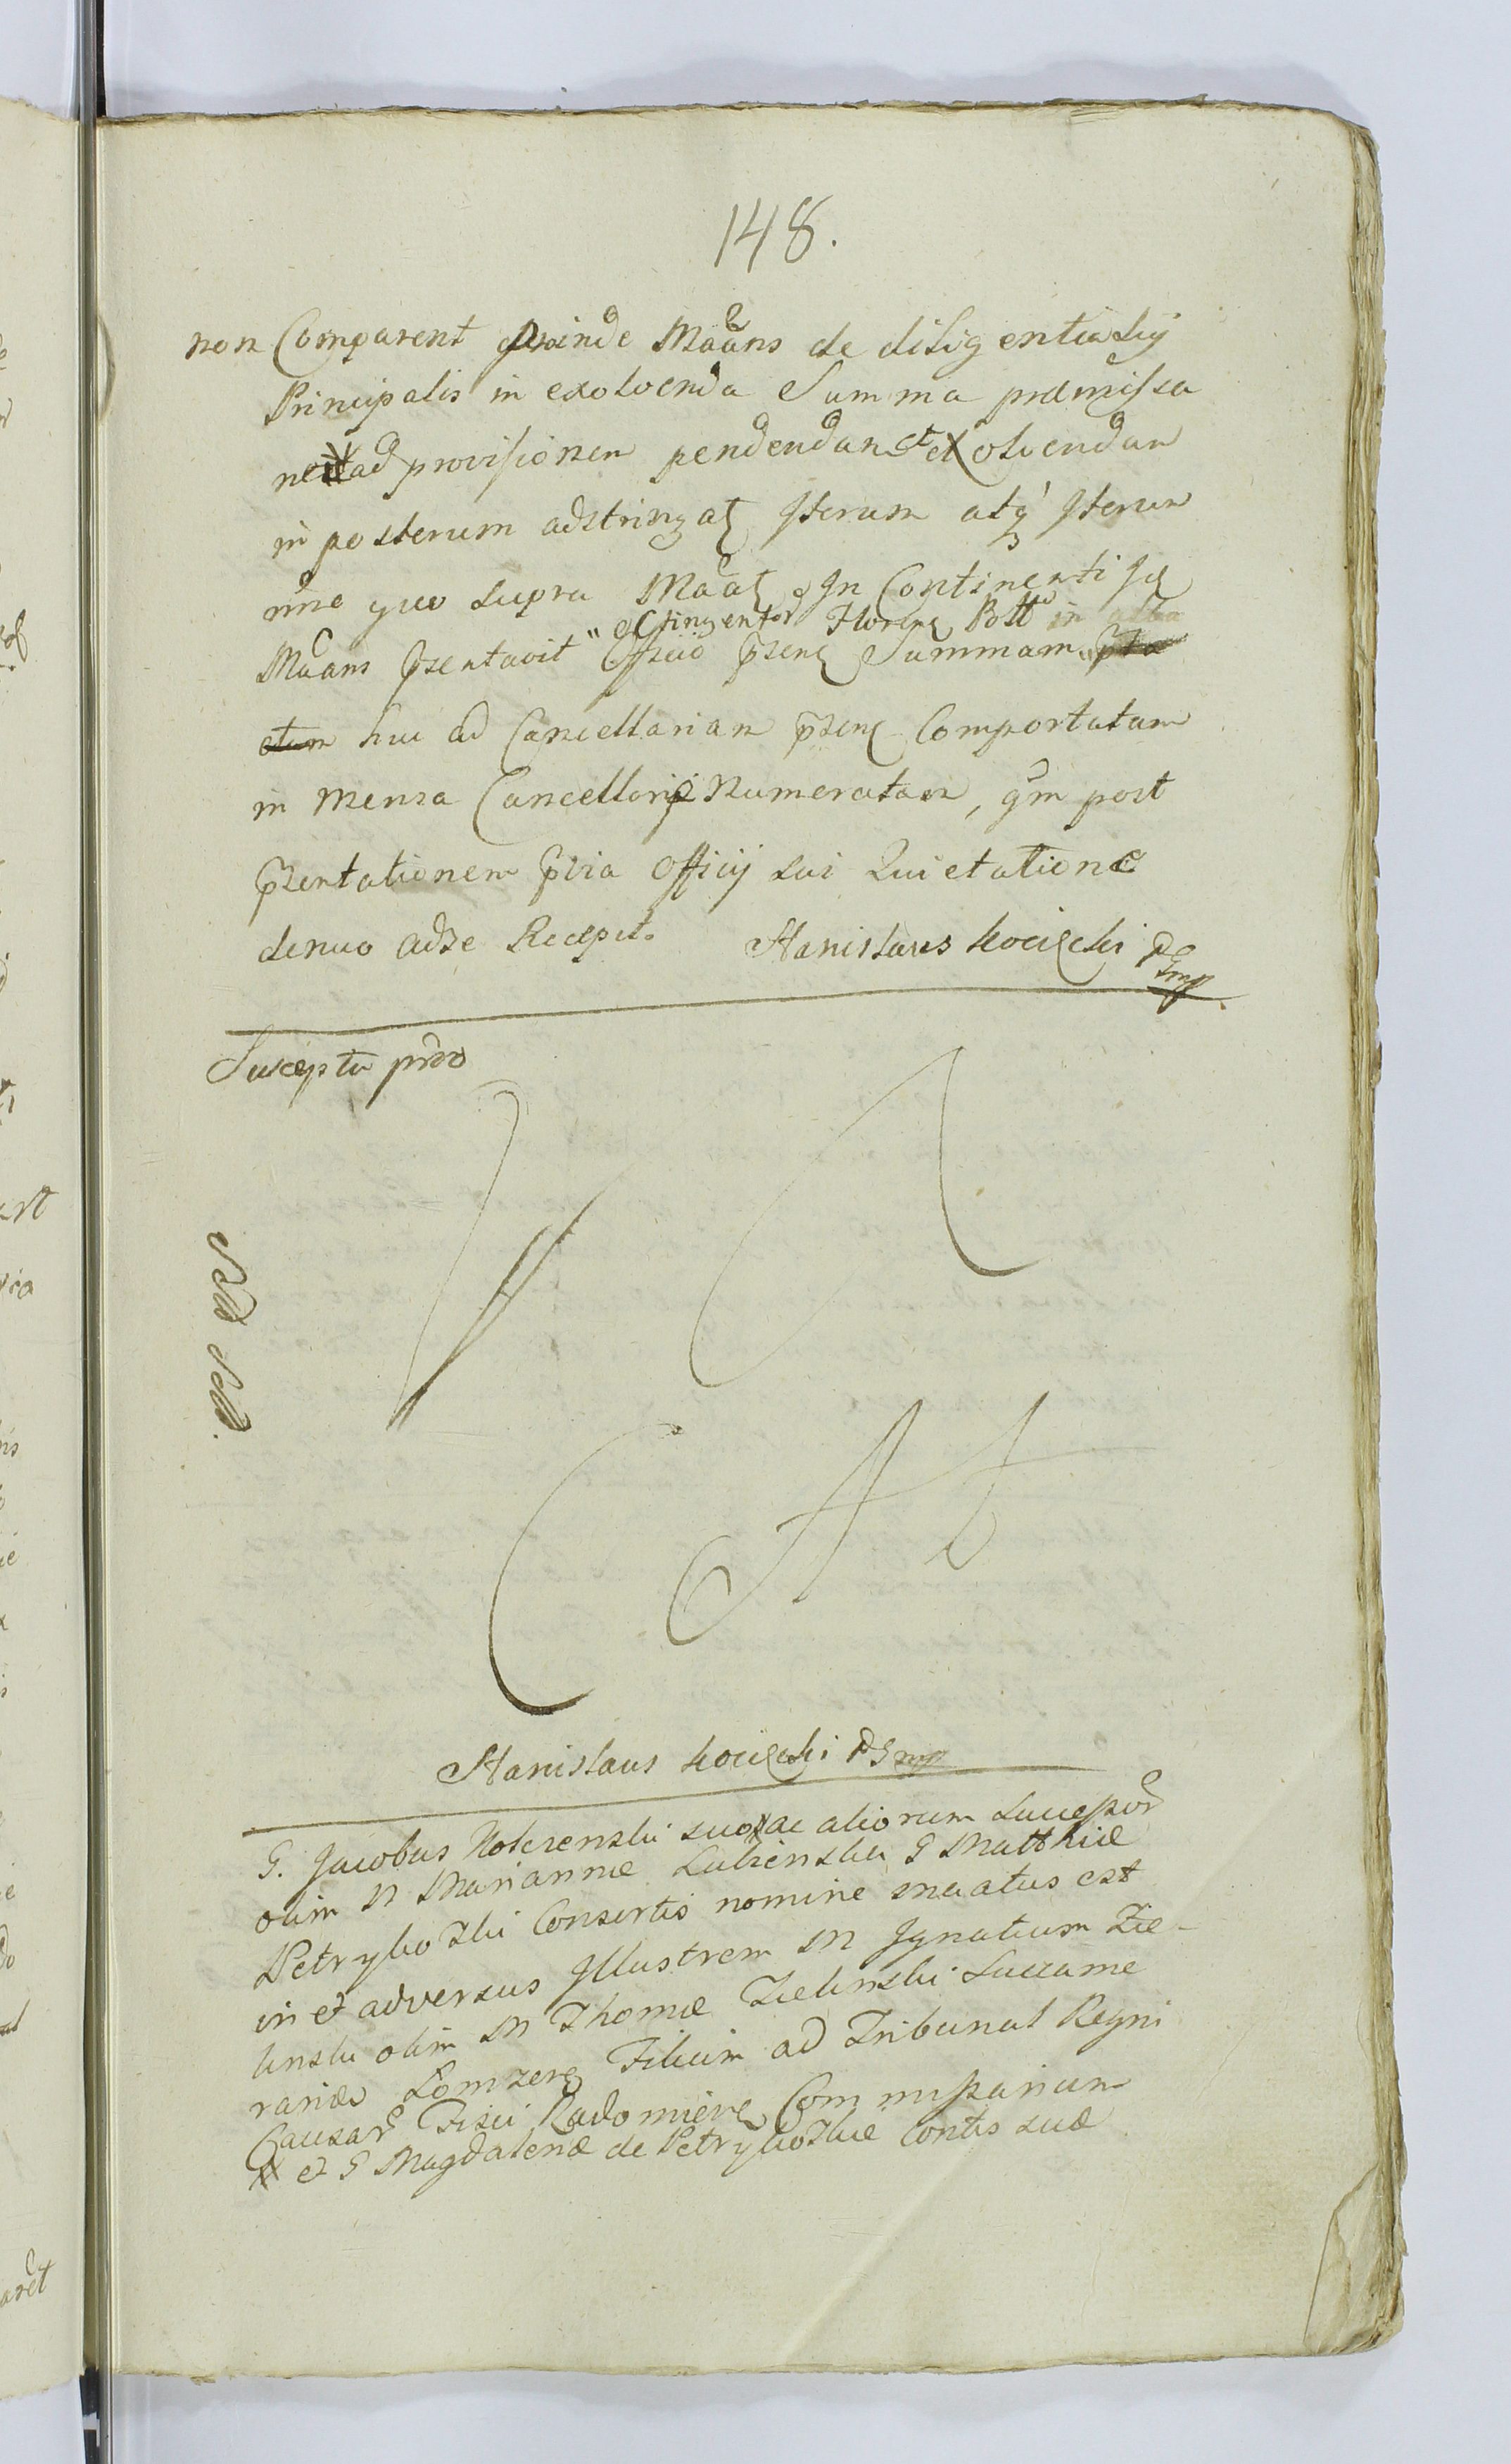 148.
non Comparent proinde Maans de diligentia sij
Principalis in exolvenda Summa præmissa
ne ad provisionem pendendam et exolvendam
in posterum adstringat Iterum atq Iterum
nne quo supra Maat In Continenti Id
octingentor Floreng Poll in
Maans pzentavit Officio pzens Summam
huc ad Cancellariam pzens Comportatam
in mensa Cancellarij Numeratam, qm post
pzentationem pvia Officij sui Quietatione
denuo adse Recepit. Stanislaus Kocięcki PG mp
Suscepta pno
V A
C A t
Stanislaus Kocięcki PG mp
G. Jacobus Kolczenski suo ac aliorum Successor
olim M Marianne Lubienska G Matthiæ
Petrykozki Consortis nomine maatus est
in et adversus Illustrem M Ignatium Zie-
linski olim M Thomæ Zielinski Succame
rarid Lomzens Filium ad Tribunal Regni
Causar Fisci Radomiens Commissarium
et G Magdalenæ de Petrykozkie Contis suæ